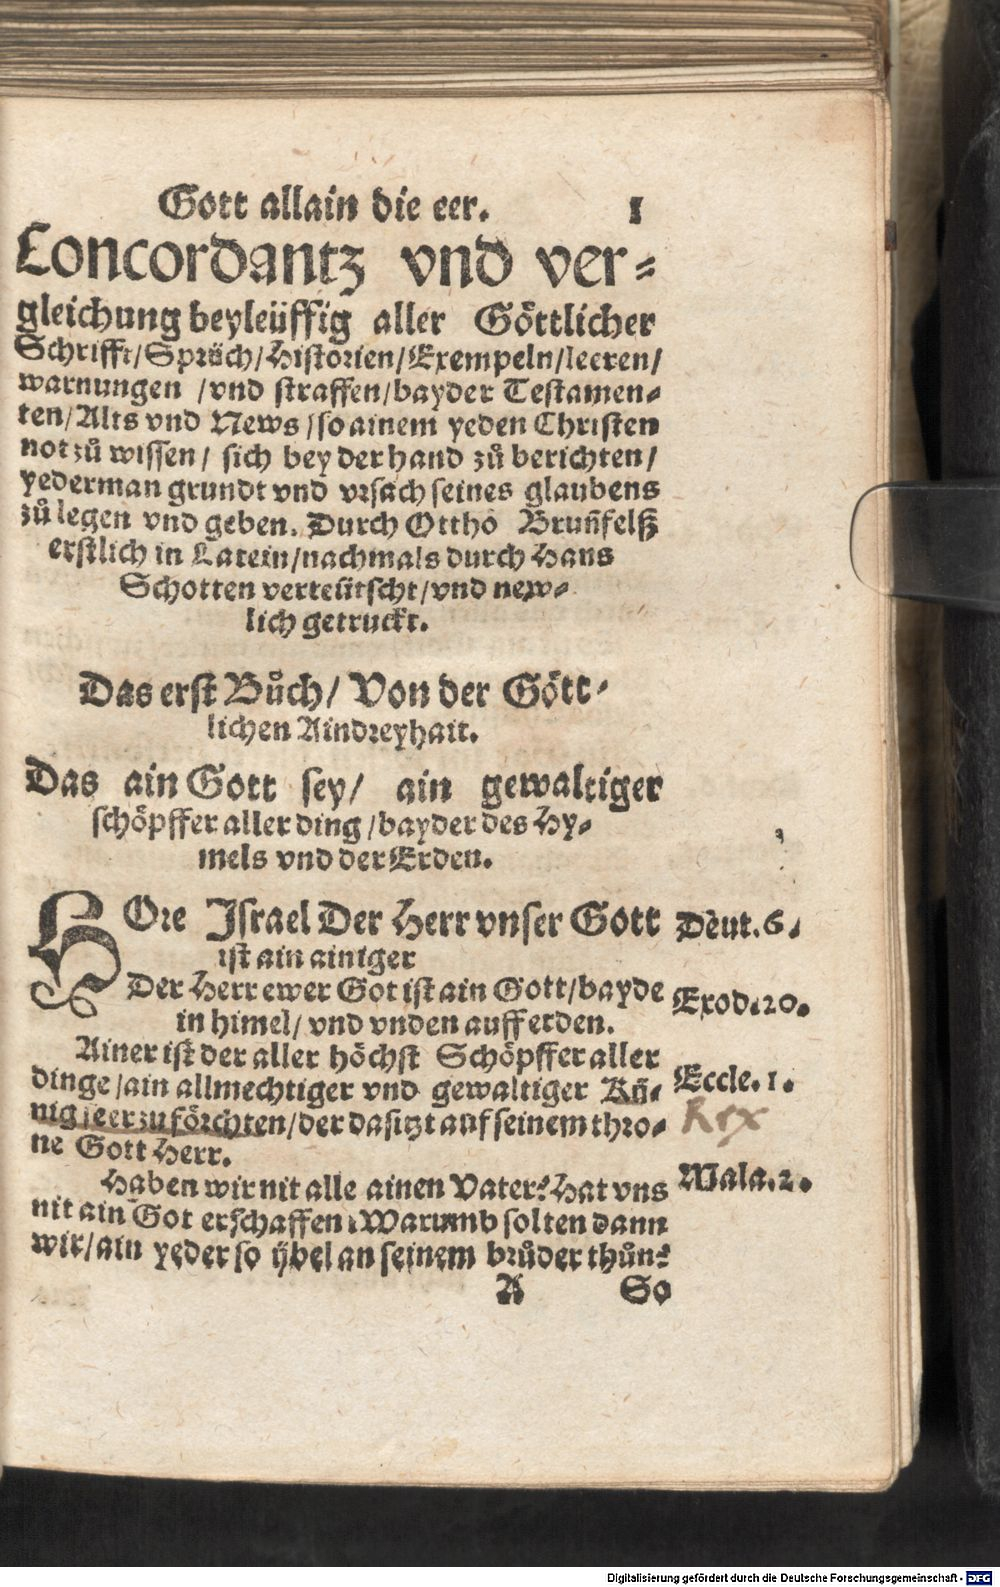 Gott allain die eer. 1
Concordantz vnd ver-
gleichung beyleüffig aller Göttlicher
Schrifft/Sprüch/Historien/Exempeln/leeren/
warnungen /vnd straffen/bayder Testamen-
ten/Alts vnd News/so ainem yeden Christen
not zů wissen/ sich bey der hand zů berichten/
yederman grundt vnd vrsach seines glaubens
zů legen vnd geben. Durch Ottho Bruñfelß
erstlich in Latein/nachmals durch Hans
Schotten verteütscht/vnd new-
lich getruckt.
Das erst Bůch/ Von der Gött-
lichen Aindreyhait.
Das ain Gott sey/ ain gewaltiger
schöpffer aller ding/bayder des Hy-
mels vnd der Erden.
HOre Israel Der Herr vnser Gott Deut.6.
ist ain ainiger
Der Herr ewer Got ist ain Gott/bayde Exod.20.
in himel/ vnd vnden auff erden.
Ainer ist der aller höchst Schöpffer aller
dinge/ain allmechtiger vnd gewaltiger Kü- Eccle.1.
nig/eer zu förchten/der da sitzt auf seinem thro- Rex
ne Gott Herr.
Haben wir nit alle ainen Vater? Hat vns Mala.2.
nit ain Got erschaffen? Warumb solten dann
wir/ain yeder so ÿbel an seinem brůder thůn?
A So
Digitalisierung gefördert durch die Deutsche Forschungsgemeinschaft - DFG